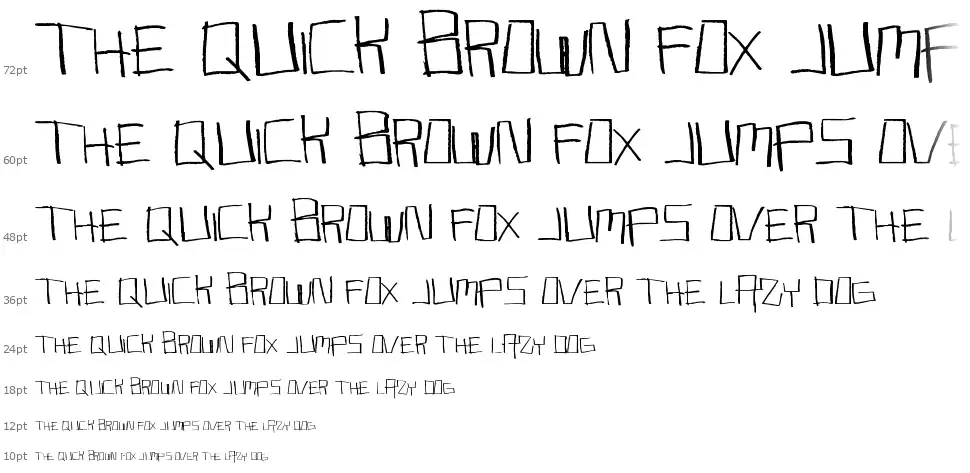 72pt THE QUICK BROWN FOX JUMP
60pt THE QUICK BROWN FOX JUMPS OVE
48pt THE QUICK BROWN FOX JUMPS OVER THE L
36pt THE QUICK BROWN FOX JUMPS OVER THE LAZY DOG
24pt THE QUICK BROWN FOX JUMPS OVER THE LAZY DOG
18pt THE QUICK BROWN FOX JUMPS OVER THE LAZY DOG
12pt THE QUICK BROWN FOX JUMPS OVER THE LAZY DOG
10pt THE QUICK BROWN FOX JUMPS OVER THE LAZY DOG